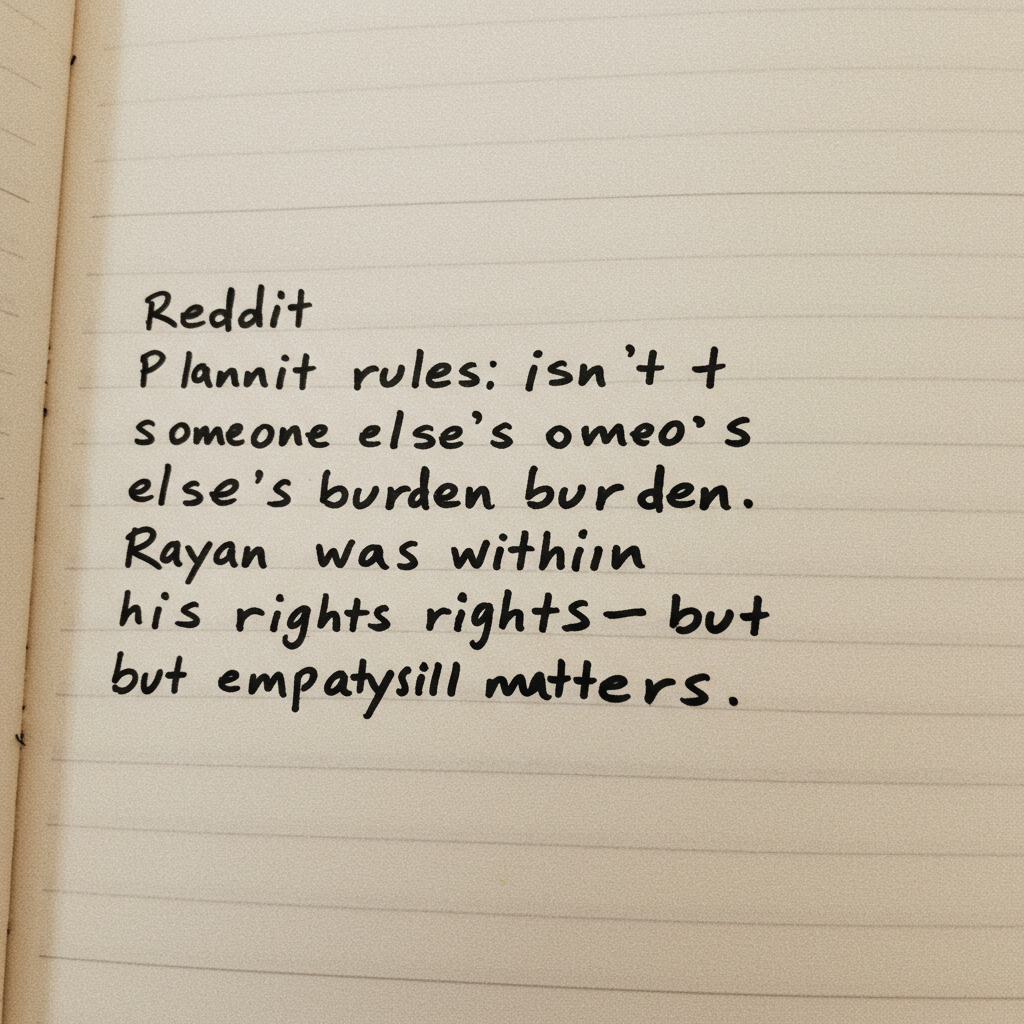 Reddit
P lannit rules: isn't t
someone else's omeo's
else's burden bur den.
Rayan was withiin
his rights rights — but
but empatysill matters.